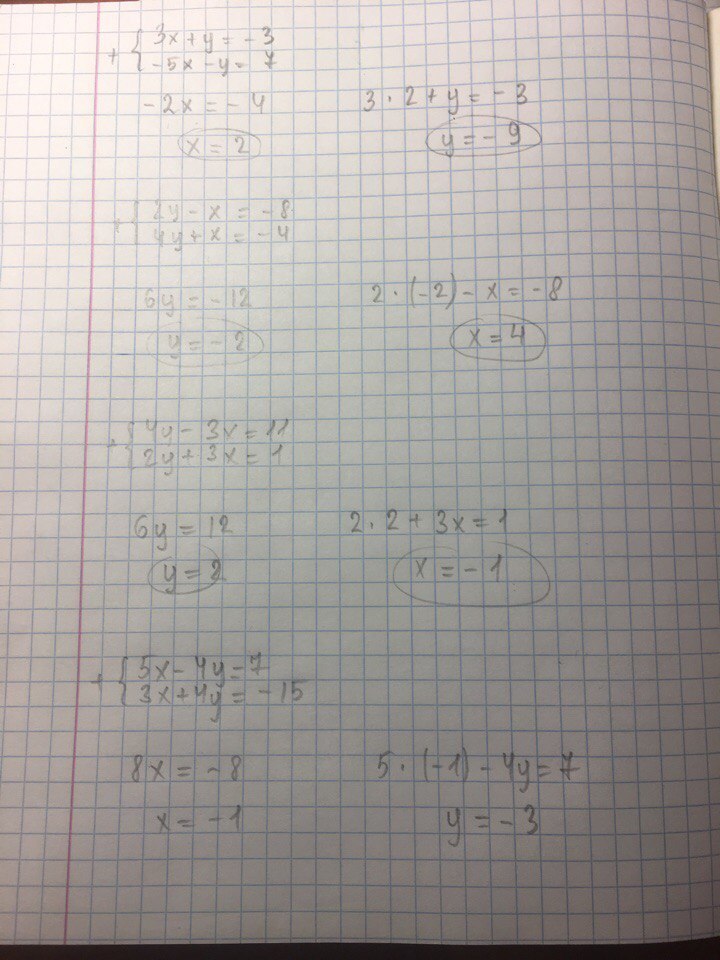 + { 3x + y = - 3
- 5x - y = 7
- 2x = - 4
3 · 2 + y = - 3
x = 2
y = - 9
+ { 2y - x = - 8
4y + x = - 4
6y = - 12
2 · (-2) - x = - 8
y = - 2
x = 4
+ { 4y - 3x = 11
2y + 3x = 1
6y = 12
2 · 2 + 3x = 1
y = 2
x = - 1
+ { 5x - 4y = 7
3x + 4y = - 15
8x = - 8
5 · (-1) - 4y = 7
x = - 1
y = - 3